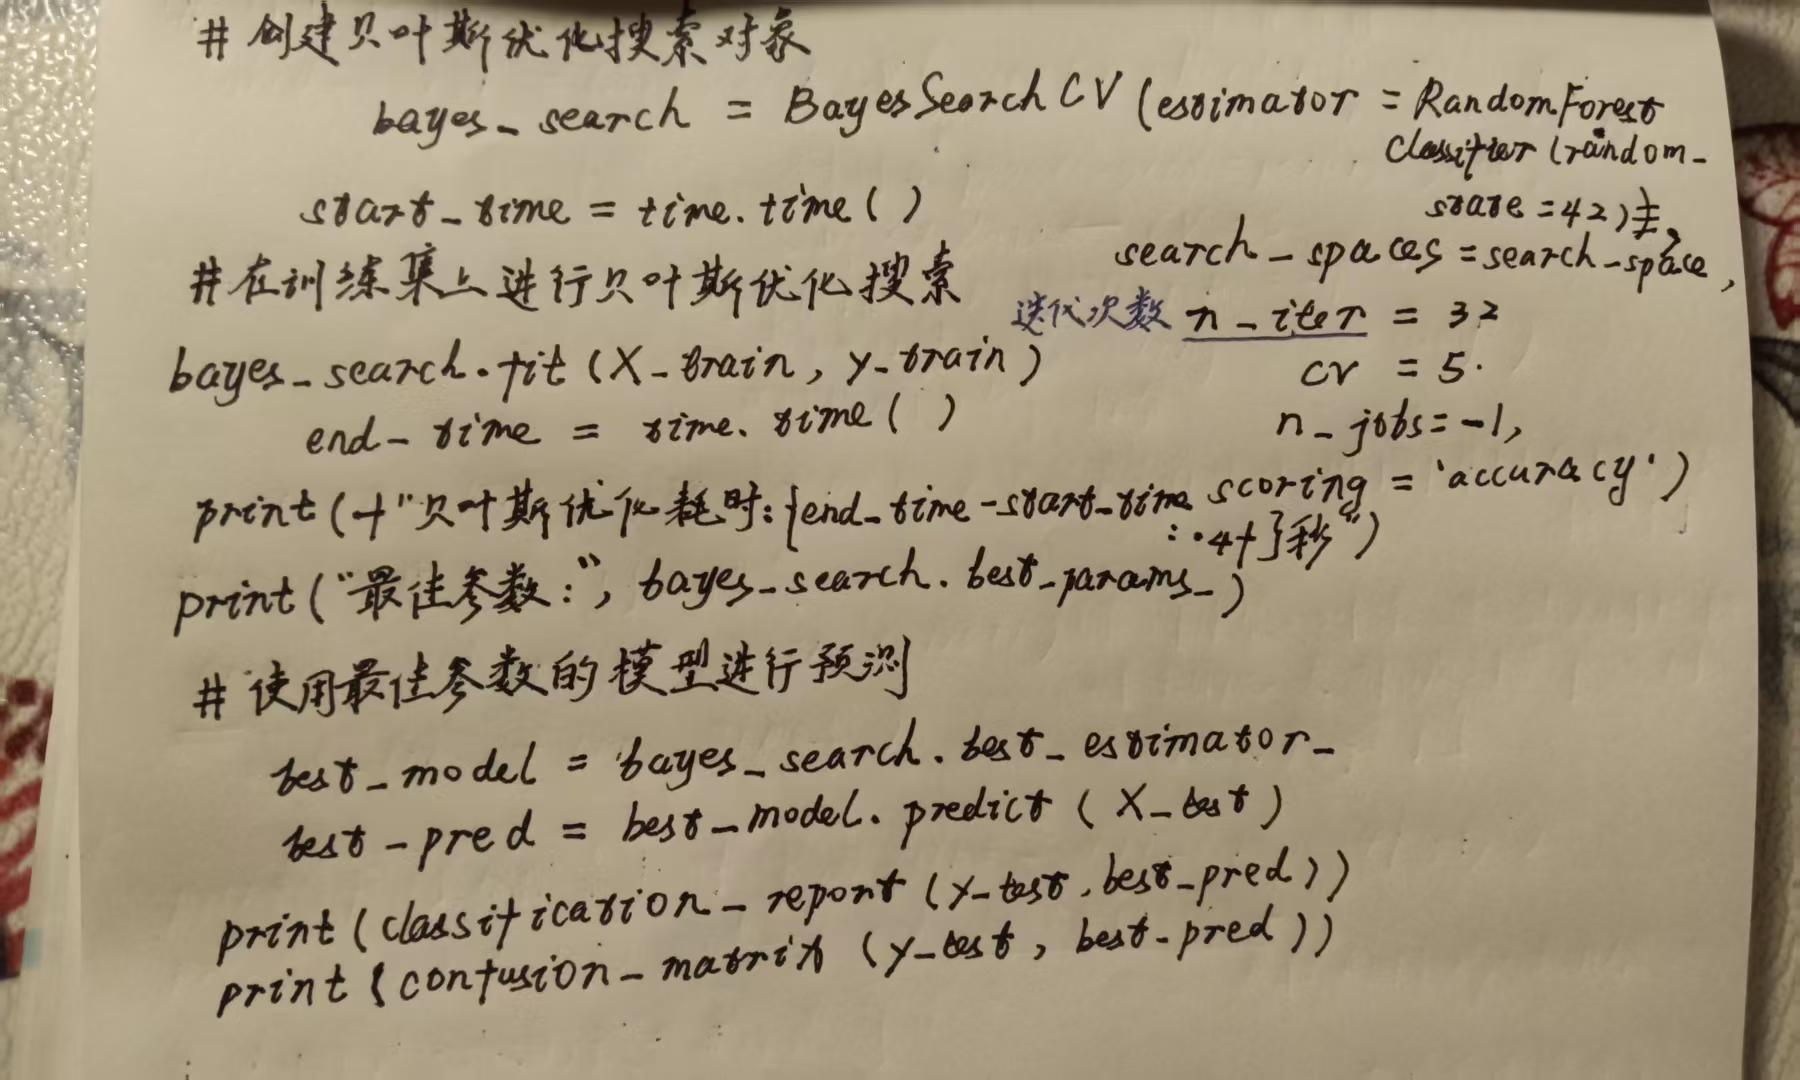 # 创建贝叶斯优化搜索对象
bayes_search = BayesSearchCV (estimator = RandomForest
Classifier (random_
state = 42),
search_spaces = search_space,
迭代次数 n_iter = 32
cv = 5.
n_jobs = -1,
scoring = 'accuracy')
start_time = time.time( )
# 在训练集上进行贝叶斯优化搜索
bayes_search.fit (X_train, y_train)
end_time = time.time( )
print (f"贝叶斯优化耗时: {end_time - start_time
:.4f}秒")
print ("最佳参数:", bayes_search.best_params_)
# 使用最佳参数的模型进行预测
best_model = bayes_search.best_estimator_
best_pred = best_model.predict (X_test)
print (classification_report (y_test, best_pred))
print (confusion_matrix (y_test, best_pred))